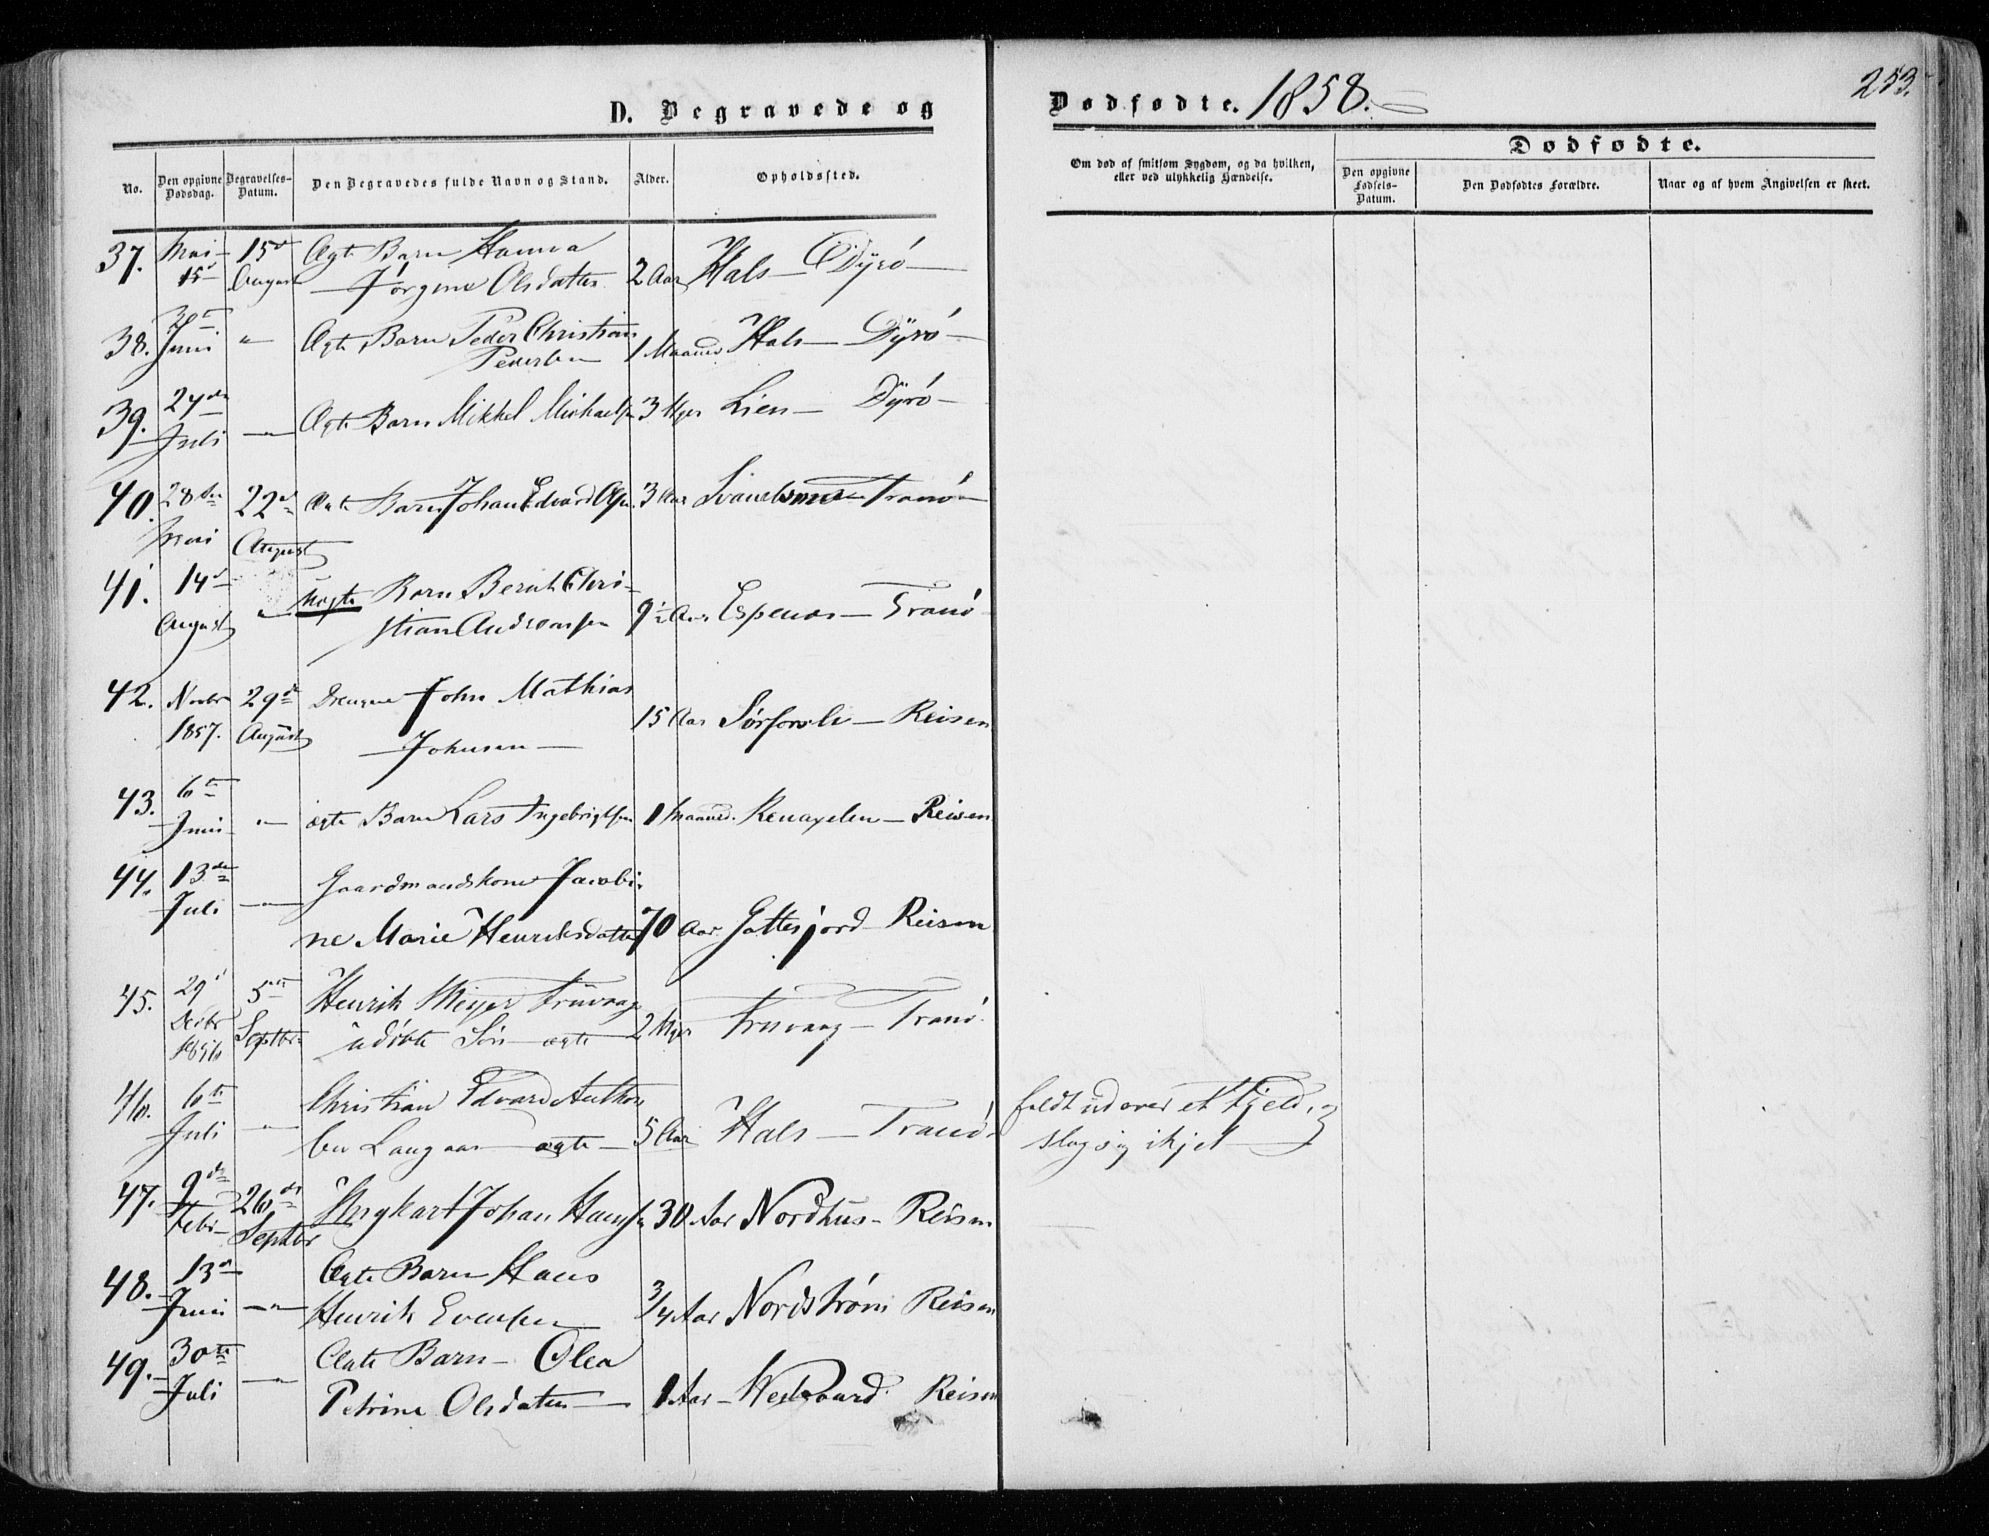 D. Begravede og
Dødfødte. 1858.
253.
No.
Den opgivne Dødsdag.
Begravelses-Datum.
Den Begravedes fulde Navn og Stand.
Alder.
Opholdssted.
Om død af smitsom Sygdom, og da hvilken,
eller ved ulykkelig Hændelse.
Dødfødte.
Den opgivne Fødsels-Datum.
Den Dødfødtes Forældre.
Naar og af hvem Angivelsen er skeet.
37. Mai 15de 15de August Ægte Barn Hanna
Jørgine Olsdatter 2 Aar Hals — Dyrø —
38. Juni " Ægte Barn Peder Christian
Pedersen 1 Maaned Hals — Dyrø —
39. 24de Juli — " — Ægte Barn Mikkel Michaelsen 3 Uger Lien — Dyrø —
40. 28de Mai 22de August Ægte Barn Johan Edvard 3 Aar Tranø
41. 14de August " Uægte Barn Berat Chri-
stian Andreassen 9½ Aar Espenæs — Tranø
42. Novbr 1857. 29de August Drengen John Mathias
Johnsen 15 Aar — Reisen
43. 6te Juni " ægte Barn Lars Ingebrigtsen 1 Maaned. — Reisen
44. 13de Juli — " — Gaardmandskone Jacobi-
ne Marie Henriksdatter 70 Aar Gottesjord Reisen
45. 29de Decbr 5te Septbr Henrik Meyer Truvaag
udøbte Søn ægte 2 Uger Truvaag — Tranø
46. 6te Juli — " — Christian Edvard Anthon-
sen Langaas — ægte — 5 Aar Hals — Tranø faldt ud over et Fjeld, og
slog sig ihjel
47. 9de Febr 26de Septbr Ungkarl Johan Hansen 30 Aar Nordhus — Reisen
48. 13de Juni — " — Ægte Barn Hans
Henrik Evensen 3/4 Aar Nordstrøm Reisen
49. 30te Juli — " — Ægte Barn — Olea
Petrine Olsdatter — 1 Aar — Reisen